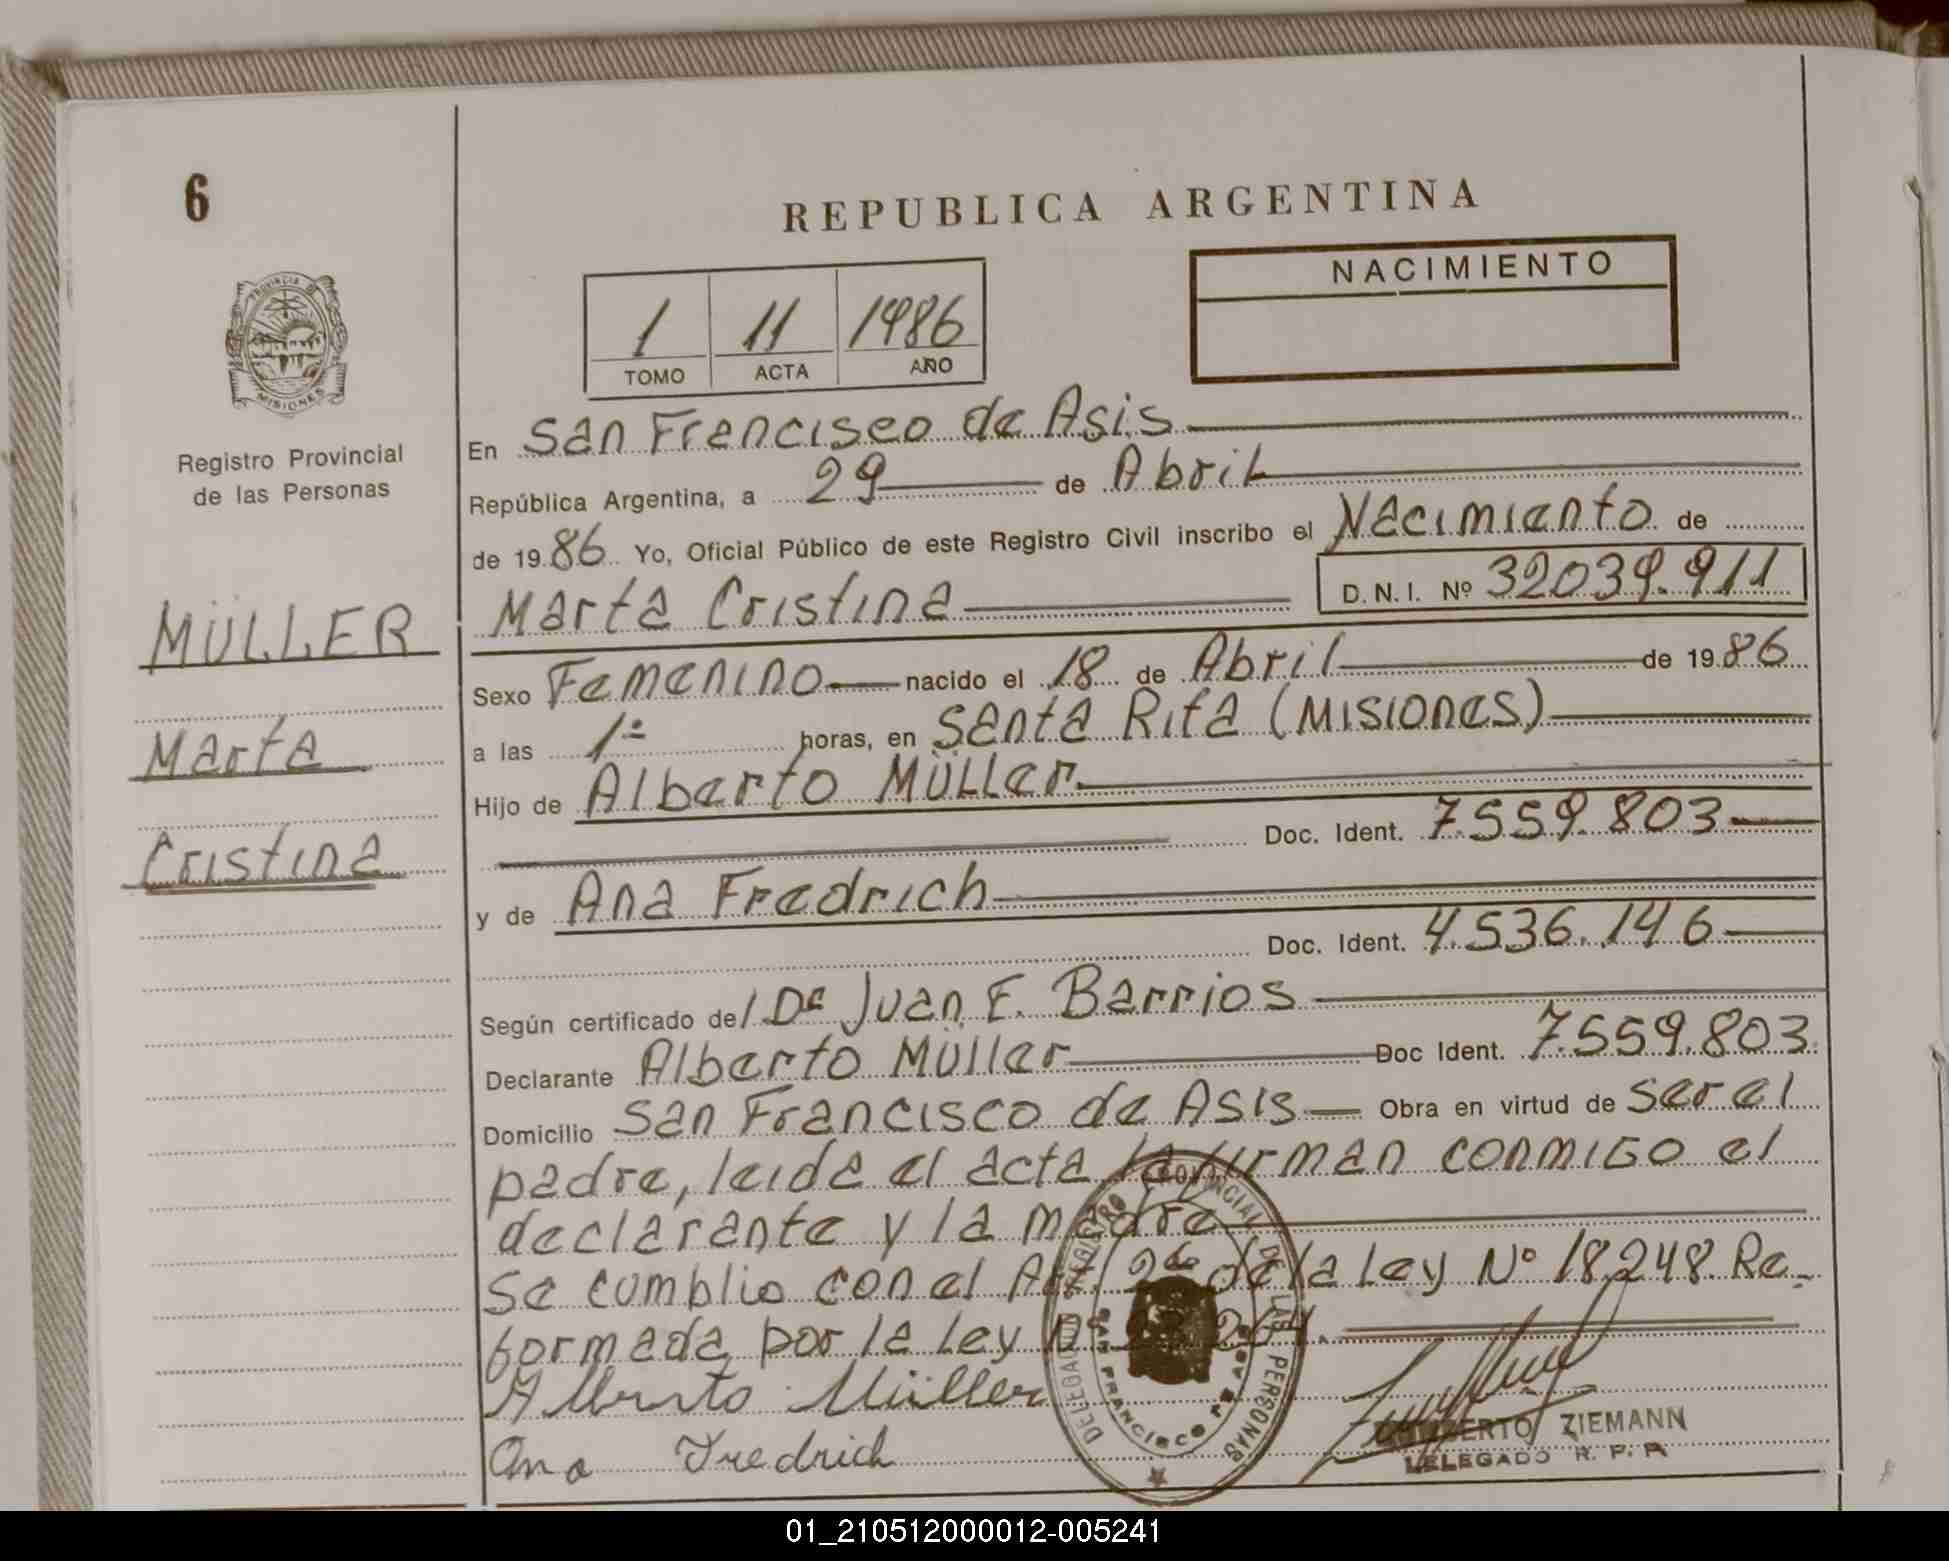 6
REPUBLICA ARGENTINA
NACIMIENTO
1 11 1986
TOMO ACTA AÑO
PROVINCIA DE
MISIONES
Registro Provincial
de las Personas
MÜLLER
Marta
Cristina
En San Francisco de Asis
República Argentina, a 29 de Abril
de 1986 Yo, Oficial Público de este Registro Civil inscribo el Nacimiento de
Marta Cristina D.N.I. Nº 32039.911
Sexo Femenino nacido el 18 de Abril de 1986
a las 1- horas, en Santa Rita (Misiones)
Hijo de Alberto MÜLLer
Doc. Ident. 7.559.803
y de Ana Fredrich
Doc. Ident. 4.536.146
Según certificado del Dr Juan E. Barrios
Declarante Alberto Müller Doc Ident. 7.559.803
Domicilio San Francisco de Asis Obra en virtud de ser el
padre, leida el acta la firman conmigo el
declarante y la madre
Se cumplio con el Art. 2do de la Ley Nº 18.248. Re-
formada por la Ley Nº
Alberto Müller
Ana Fredrich
DELEGACION REGISTRO PROVINCIAL DE LAS PERSONAS
SAN FRANCISCO DE ASIS
ZIEMANN
DELEGADO R. P. P.
01_210512000012-005241